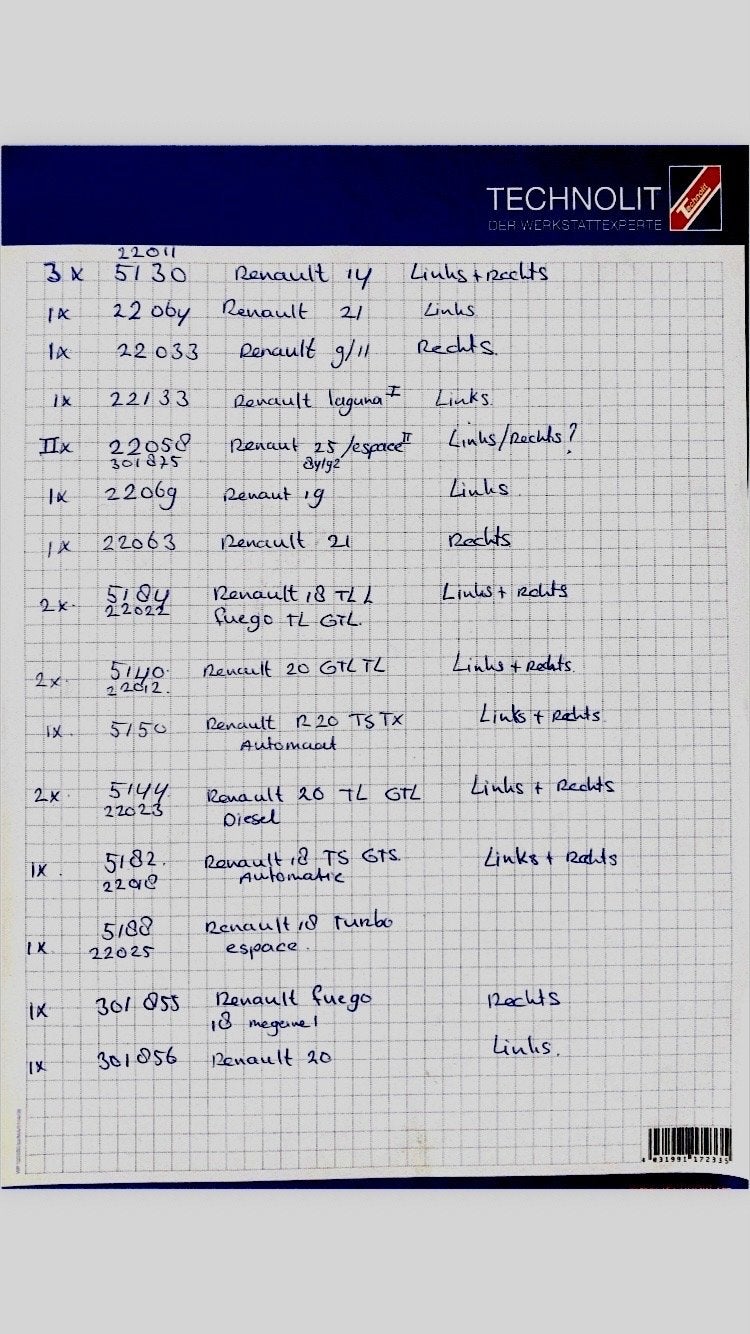 TECHNOLIT
DER WERKSTATTEXPERTE
Technolit
22011
3x 5130 Renault 14 Links + Rechts
1x 22064 Renault 21 Links
1x 22033 Renault 9/11 Rechts.
1x 22133 Renault laguna I Links
IIx 22058 Renaut 25/espace II Links/Rechts?
301875 84/92
1x 22069 Renaut 19 Links
1x 22063 Renault 21 Rechts
2x. 5184 Renault 18 TLL Links + Rechts
22022 fuego TL GTL.
2x. 5140. Renault 20 GTL TL Links + Rechts.
22012.
1x. 5150 Renault R20 TS TX Links + Rechts
Automaat
2x. 5144 Renault 20 TL GTL Links + Rechts
22023 Diesel
1x. 5182. Renault 18 TS GTS. Links + Rechts
22018 Automatic
5188 Renault 18 Turbo
1x 22025 espace.
1x 301855 Renault fuego Rechts
18
1x 301856 Renault 20 Links.
4 031991 172335